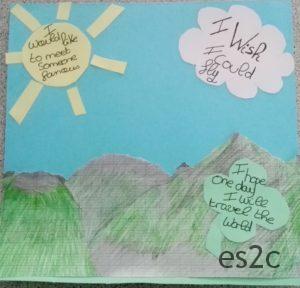 I
would like
to meet
someone
famous
I Wish
I Could
fly
I hope
one day
I will
travel the
World
es2c